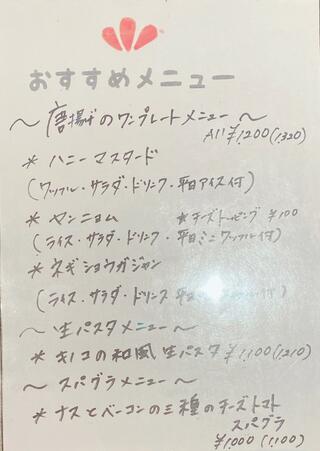 おすすめメニュー
〜唐揚げのワンプレートメニュー〜
All ¥1,200(1,320)
* ハニーマスタード
(ワッフル・サラダ・ドリンク・平日アイス付)
* ヤンニョム ★チーズトッピング ¥100
(ライス・サラダ・ドリンク・平日ミニワッフル付)
* ネギショウガジャン
(ライス・サラダ・ドリンク 付)
〜生パスタメニュー〜
* キノコの和風生パスタ ¥1,100(1,210)
〜スパグラメニュー〜
* ナスとベーコンの三種のチーズトマト
スパグラ
¥1,000(1,100)